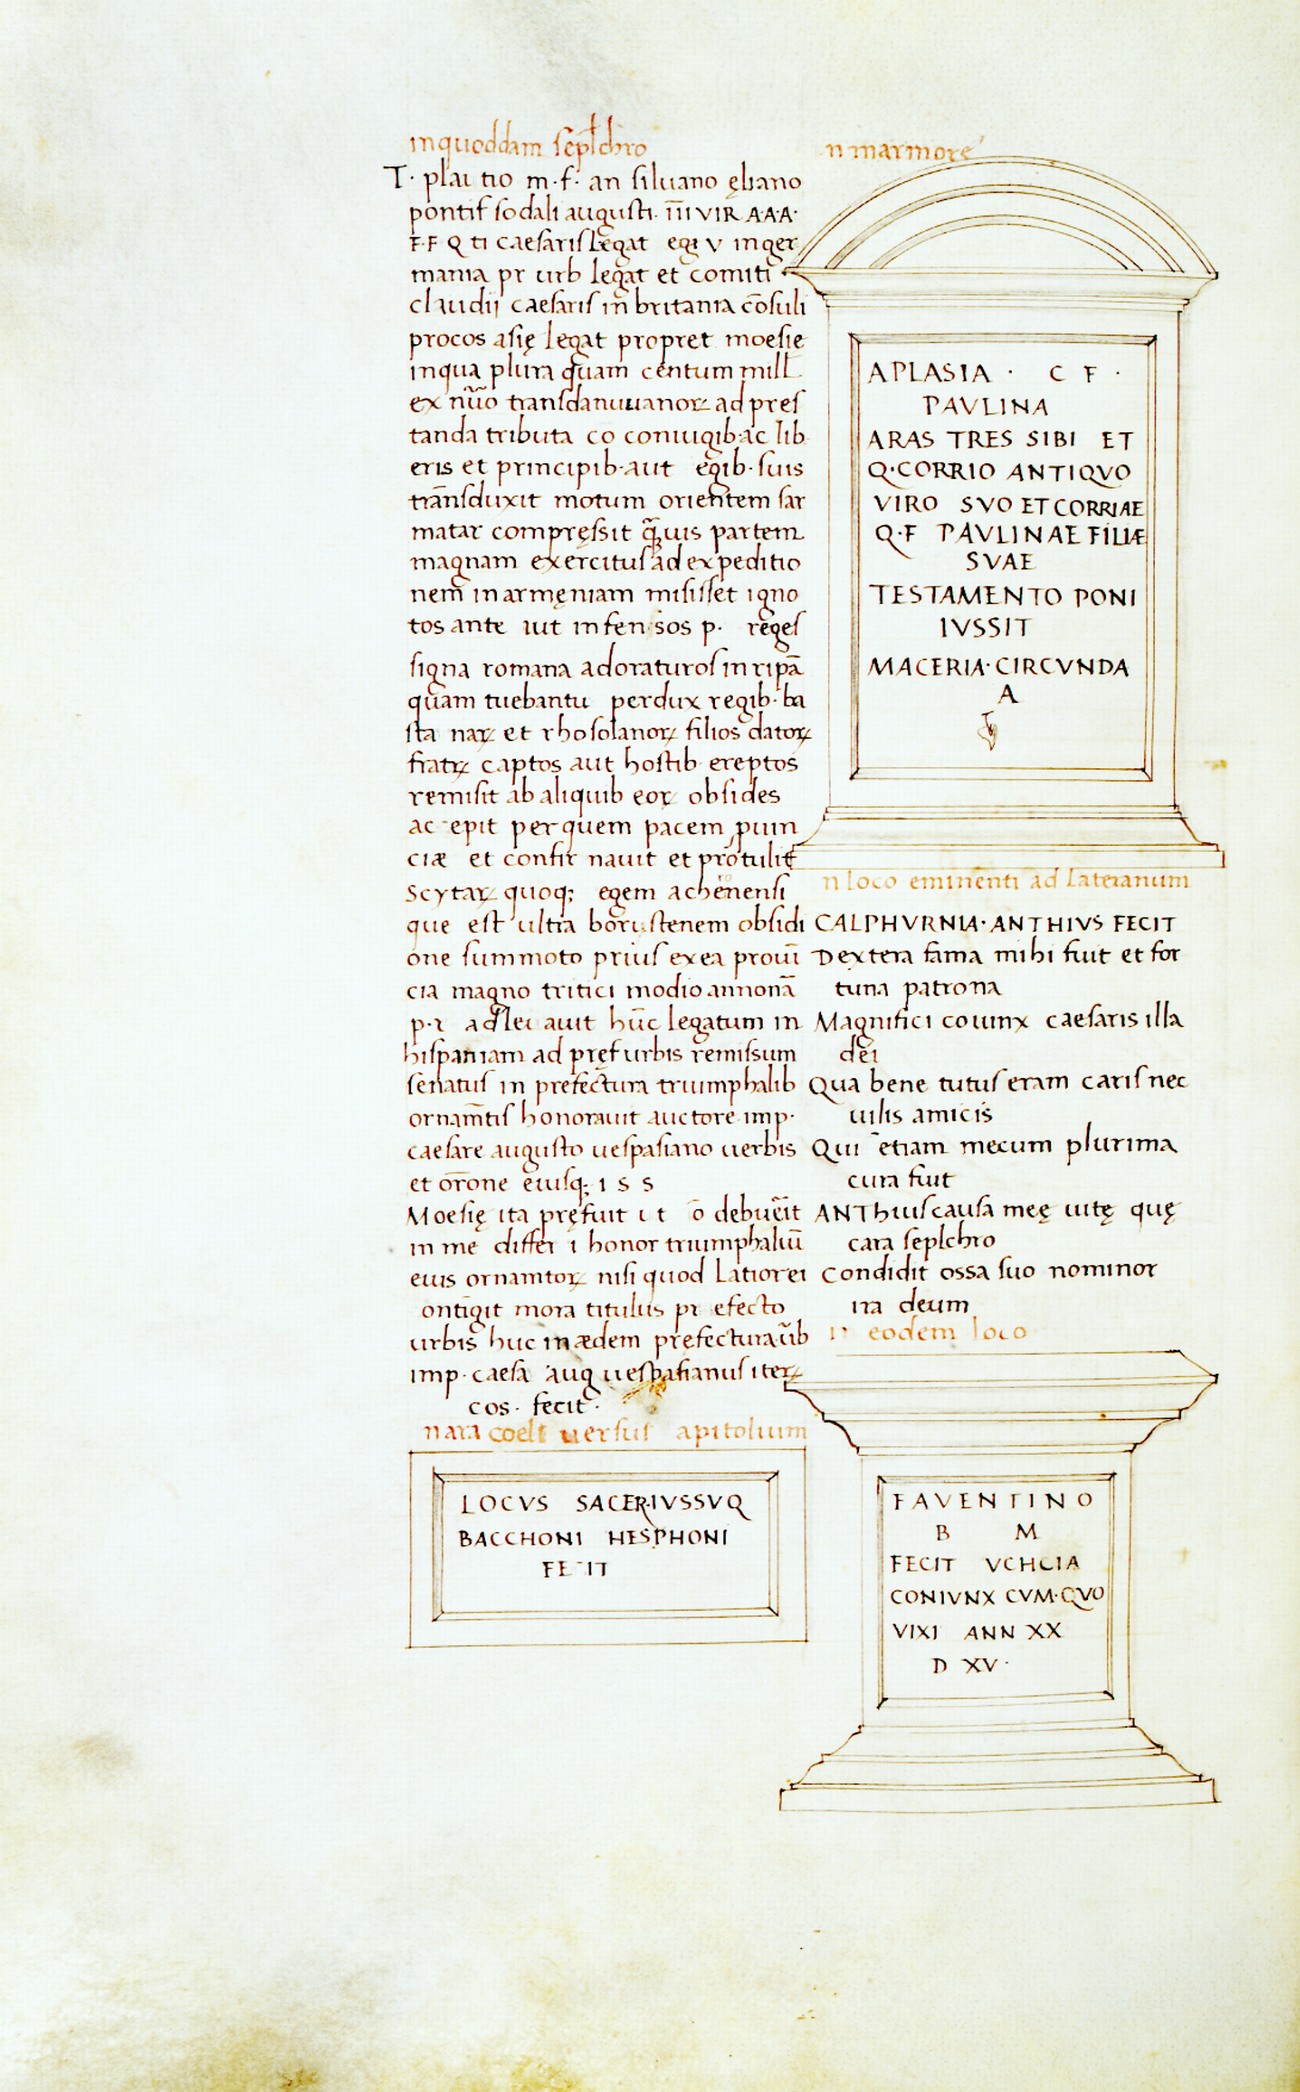 inquoddam sepl̄chro
T· plau tio m·f· an siluano ęliano
pontif sodali augusti· īīī VIR A·A·A·
F·F Q ti caesaris legat egi V inger
mania pr urb legat et comiti
claudij caesaris in britania cōsuli
procos asię legat propret moesie
inqua plura quam centum mill
ex nūo transdanuuianoꝝ ad pres
tanda tributa co coniugib·ac lib
eris et principib·aut egib·suis
trānsduxit motum orientem sar
matar compręssit q̄uis partem
magnam exercitus ad expeditio
nem in armęniam misisset igno
tos ante iut infensos p· reges
signa romana adoraturos in ripā
quam tuebantu perdux regib·ba
sta naꝝ et rhosolanoꝝ filios datoꝝ
fratꝝ captos aut hostib ereptos
remisit ab aliquib eoꝝ obsides
ac epit per quem pacem ꝓuin
ciæ et confir nauit et protulit
Scytaꝝ quoq; egem achenensi
que est ultra borustenem obsidi
one summoto prius ex ea prouī
cia magno tritici modio annonā
p·r adleuauit hūc legatum in
hispaniam ad pręf urbis remissum
senatus in prefectura triumphalib
ornamt̄is honorauit auctore imp·
caesare augusto uespasiano uerbis
et or̄one eiusq; i s s
Moesię ita pręfuit ut ō debuēit
in me differ i honor triumphaliū
eius ornamtoꝝ nisi quod latior ei
ontigit mora titulus pr efecto
urbis huic in ædem prefectura ūb
imp·caesa aug uespasianus iteꝝ
cos· fecit·
nara coeli uersus apitolium
LOCVS SACER·IVSSVQ
BACCHONI HESPHONI
FE IT
n marmore
APLASIA · C F ·
PAVLINA
ARAS TRES SIBI ET
Q·CORRIO ANTIQVO
VIRO SVO ET CORRIAE
Q·F PAVLINAE FILIÆ
SVAE
TESTAMENTO PONI
IVSSIT
MACERIA·CIRCVNDA
A
n loco eminenti ad Lateranum
CALPHVRNIA·ANTHIVS FECIT
Dextera fama mihi fuit et for
tuna patrona
Magnifici couinx caesaris illa
dei
Qua bene tutus eram caris nec
uilis amicis
Qui etiam mecum plurima
cura fuit
ANThius causa meę uitę quę
cara seplchro
Condidit ossa suo nominor
ira deum
n eodem loco
FAVENTINO
B M
FECIT VCHCIA
CONIVNX CVM·QVO
VIXI ANN XX
D XV·